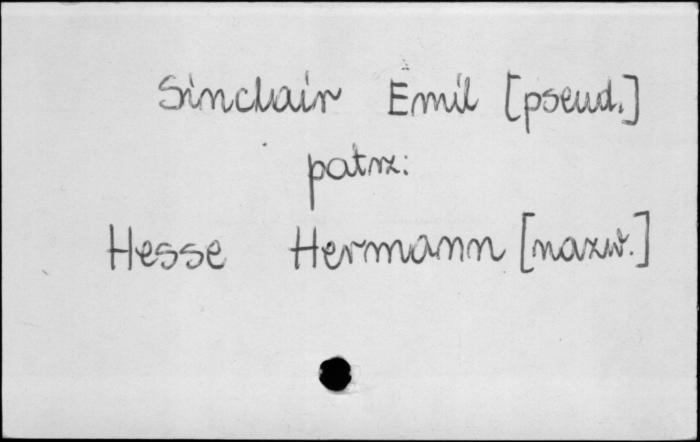 Sinclair Emil [pseud.]
patrz:
Hesse Hermann [nazw.]